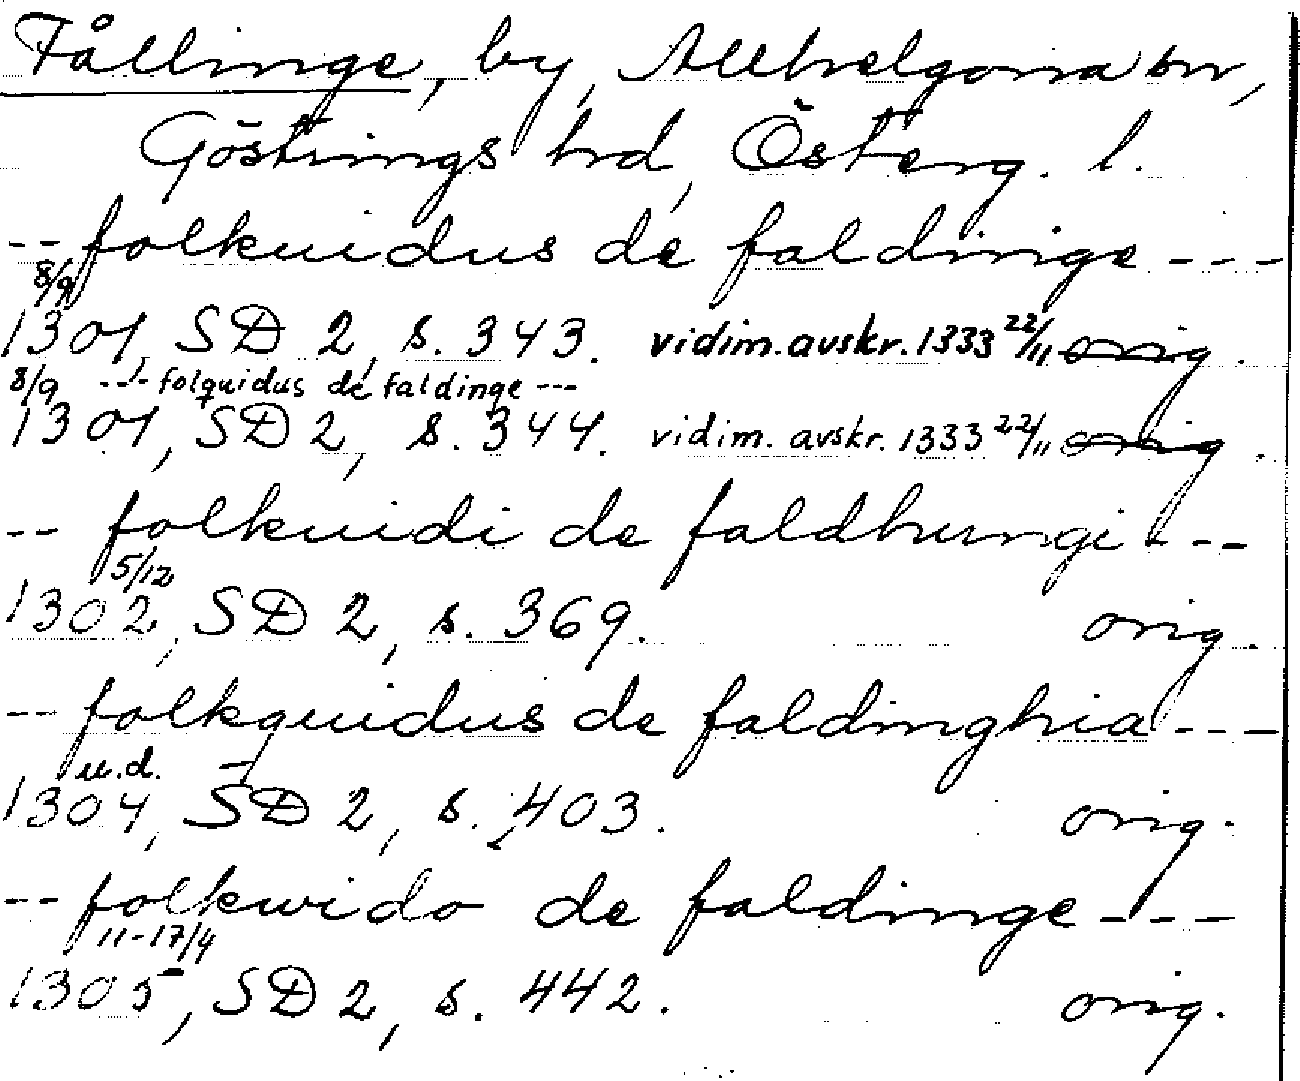 Fållinge, by, Allhelgona sn,
Göstrings hd, Österg. l.
-- folkuidus de faldinge ---
8/9
1301, SD 2, s. 343. vidim. avskr. 1333 22/11 orig.
8/9 --- folquidus de faldinge ---
1301, SD 2, s. 344. vidim. avskr. 1333 22/11 orig.
-- folkuidi de faldhungi ---
5/12
1302, SD 2, s. 369. orig.
-- folkquidus de faldinghia ---
u.d.
1304, SD 2, s. 403. orig.
-- folkwido de faldinge ---
11-17/4
1305, SD 2, s. 442. orig.